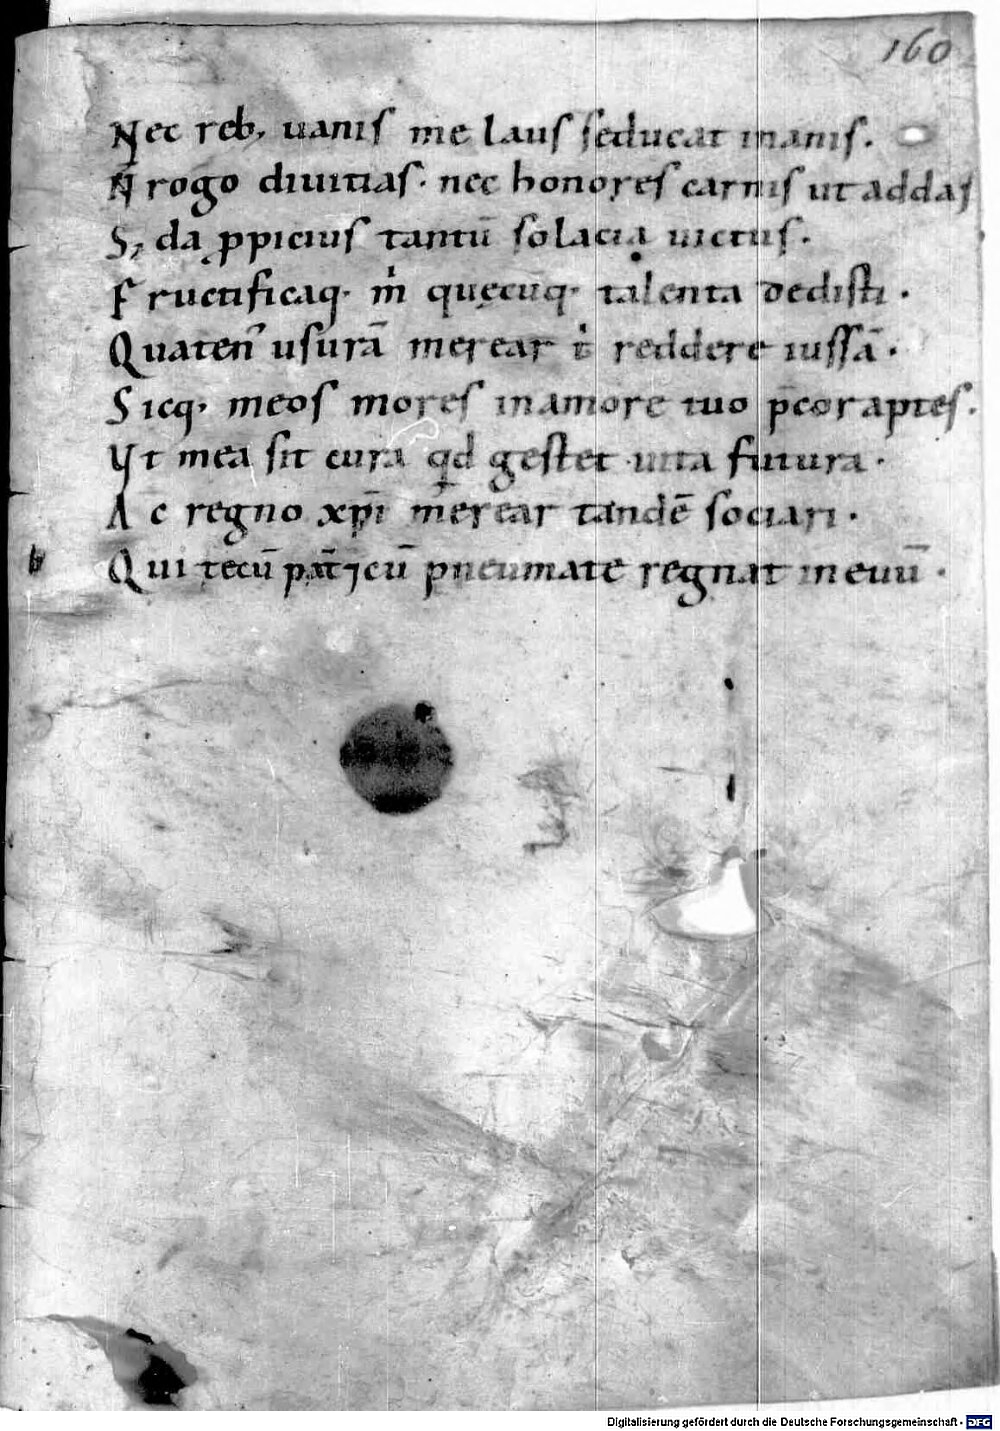 160
Nec reb; uanis me laus seducat inanis.
N̄ rogo diuitias. nec honores carnis ut addas
S; da ꝓpicius tantū solacia uictus.
Fructificaq. m̍ quęcūq. talenta dedisti.
Quaten̉ usurā merear t̍ reddere iussā.
Sicq. meos mores in amore tuo p̄cor aptes.
Vt mea sit cura qd gestet uita futura.
Ac regno xp̄i merear tandē sociari.
Qui tecū pat̄ ⁊ cū pneumate regnat in euū.
Digitalisierung gefördert durch die Deutsche Forschungsgemeinschaft - DFG